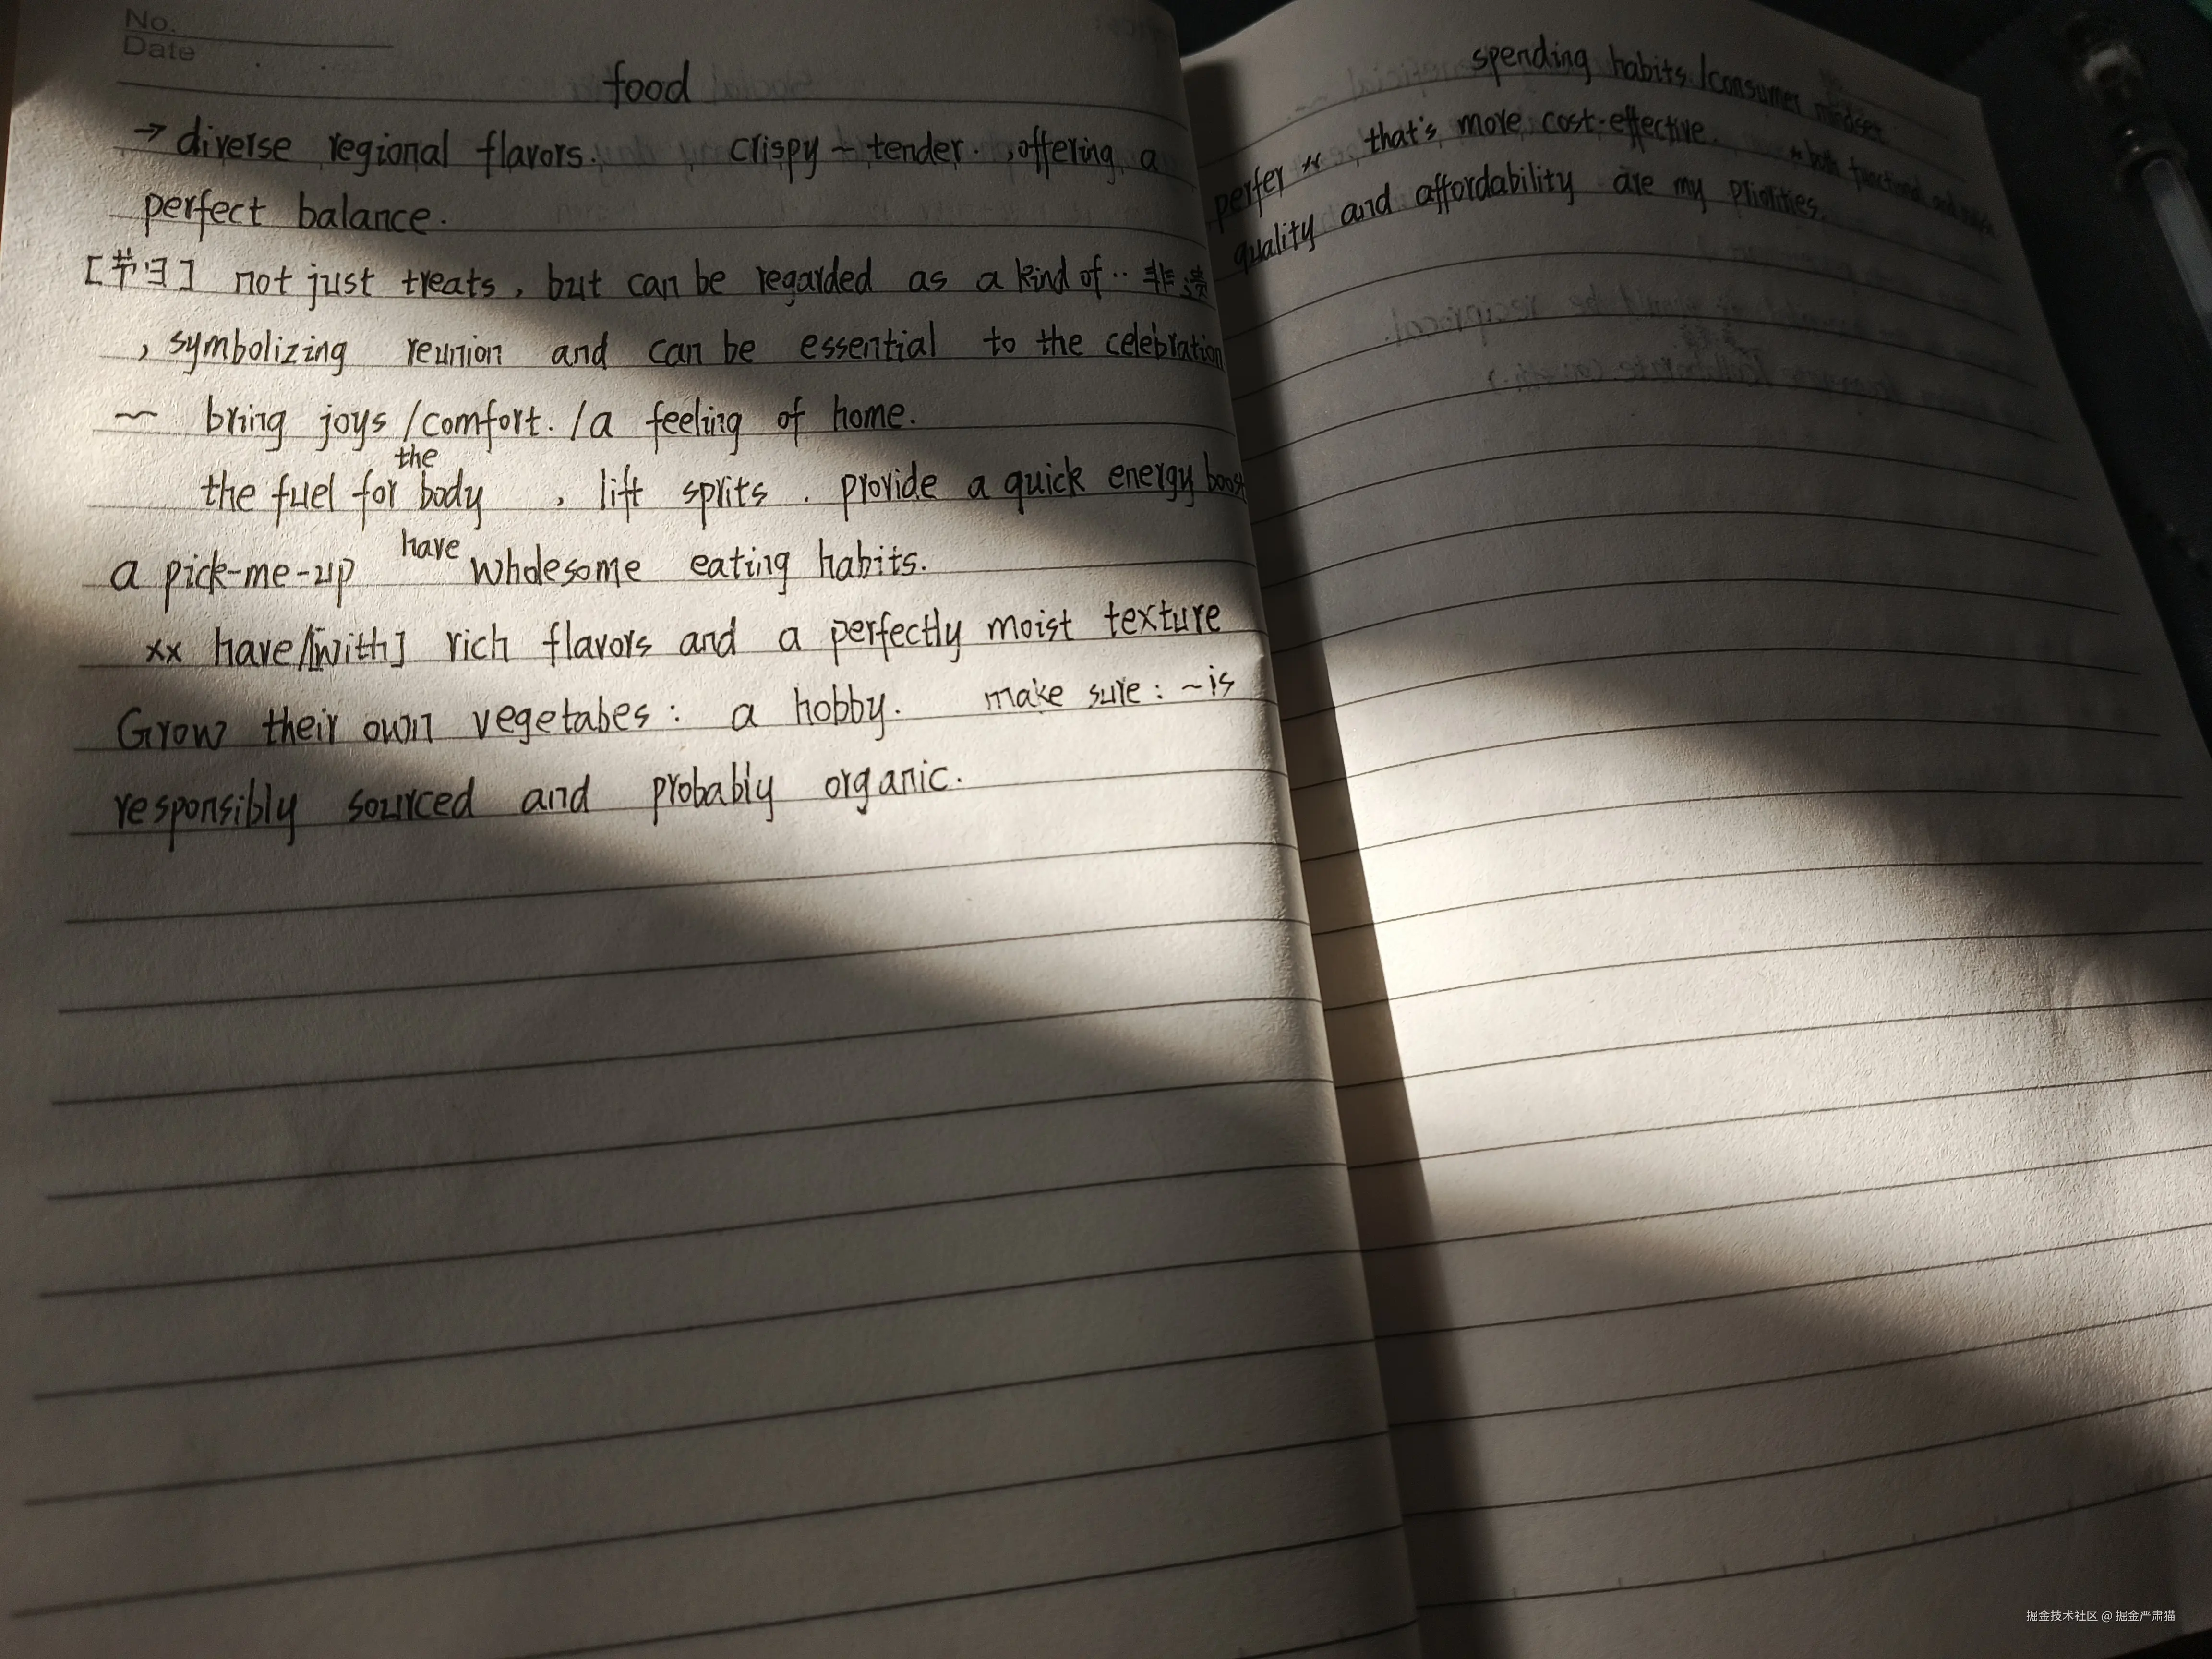 No.
Date
food
→ diverse regional flavors. crispy ~ tender. , offering a
perfect balance.
[节日] not just treats, but can be regarded as a kind of .. 非遗
, symbolizing reunion and can be essential to the celebration
~ bring joys /comfort. /a feeling of home.
the
the fuel for body , lift sprits . provide a quick energy boost
a pick-me-up have wholesome eating habits.
xx have/[with] rich flavors and a perfectly moist texture
Grow their own vegetabes: a hobby. make sure: ~is
responsibly sourced and probably organic.
spending habits /consumer mindset
perfer xx , that's more cost-effective. * both functional and
quality and affordability are my priorities.
掘金技术社区 @ 掘金严肃猫